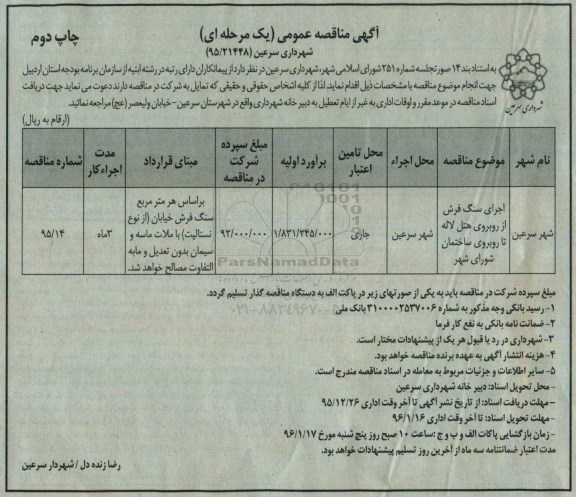 آگهی مناقصه عمومی (یک مرحله ای)
چاپ دوم
شهرداری سرعین (۹۵/۲۱۴۴۸)
شهرداری سرعین
به استناد بند ۱۴ صورتجلسه شماره ۲۵۱ شورای اسلامی شهر، شهرداری سرعین در نظر دارد از پیمانکاران دارای رتبه در رشته ابنیه از سازمان برنامه بودجه استان اردبیل
جهت انجام موضوع مناقصه با مشخصات ذیل اقدام نماید. لذا از کلیه اشخاص حقوقی و حقیقی که تمایل به شرکت در مناقصه دارند دعوت می نماید جهت دریافت
اسناد مناقصه در موعد مقرر و اوقات اداری به غیر از ایام تعطیل به دبیر خانه شهرداری واقع در شهرستان سرعین - خیابان ولیعصر (عج) مراجعه نمائید.
(ارقام به ریال)
نام شهر | موضوع مناقصه | محل اجراء | محل تامین اعتبار | برآورد اولیه | مبلغ سپرده شرکت در مناقصه | مبنای قرارداد | مدت اجراء کار | شماره مناقصه
شهر سرعین | اجرای سنگ فرش از روبروی هتل لاله تا روبروی ساختمان شورای شهر | شهر سرعین | جاری | ۱/۸۳۱/۲۴۵/۰۰۰ | ۹۲/۰۰۰/۰۰۰ | براساس هر متر مربع سنگ فرش خیابان (از نوع نستالیت) با ملات ماسه و سیمان بدون تعدیل و مابه التفاوت مصالح خواهد شد. | ۳ماه | ۹۵/۱۴
ParsNamadData
۰۲۱-۸۸۳۴۹۶۷۰
مبلغ سپرده شرکت در مناقصه باید به یکی از صورتهای زیر در پاکت الف به دستگاه مناقصه گذار تسلیم گردد.
۱- رسید بانکی وجه مذکور به شماره ۳۱۰۰۰۰۲۵۳۷۰۰۶ بانک ملی
۲- ضمانت نامه بانکی به نفع کار فرما
۳- شهرداری در رد یا قبول هر یک از پیشنهادات مختار است.
۴- هزینه انتشار آگهی به عهده برنده مناقصه خواهد بود.
۵- سایر اطلاعات و جزئیات مربوط به معامله در اسناد مناقصه مندرج است.
- محل تحویل اسناد: دبیر خانه شهرداری سرعین
- مهلت دریافت اسناد: از تاریخ نشر آگهی تا آخر وقت اداری ۹۵/۱۲/۲۶
- مهلت تحویل اسناد: تا آخر وقت اداری ۹۶/۱/۱۶
- زمان بازگشایی پاکات الف و ب و ج :ساعت ۱۰ صبح روز پنج شنبه مورخ ۹۶/۱/۱۷
مدت اعتبار ضمانتنامه سه ماه از آخرین روز تسلیم پیشنهادات خواهد بود.
رضا زنده دل / شهردار سرعین